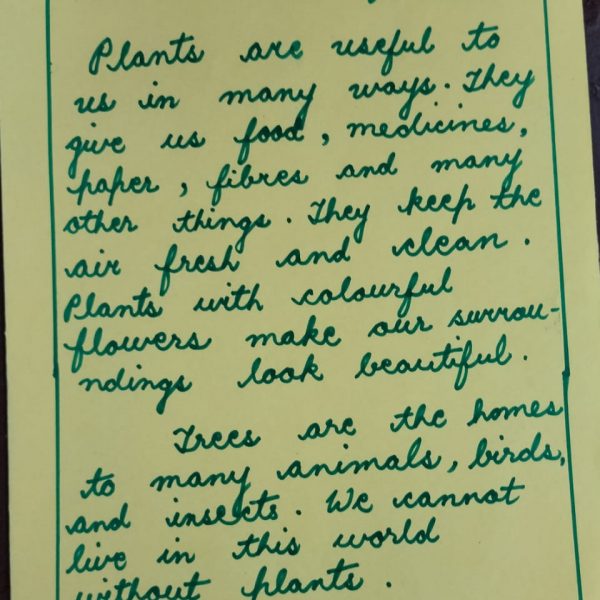 Plants are useful to
us in many ways. They
give us food, medicines,
paper, fibres and many
other things. They keep the
air fresh and clean.
Plants with colourful
flowers make our surrou-
ndings look beautiful.
Trees are the homes
to many animals, birds,
and insects. We cannot
live in this world
without plants.